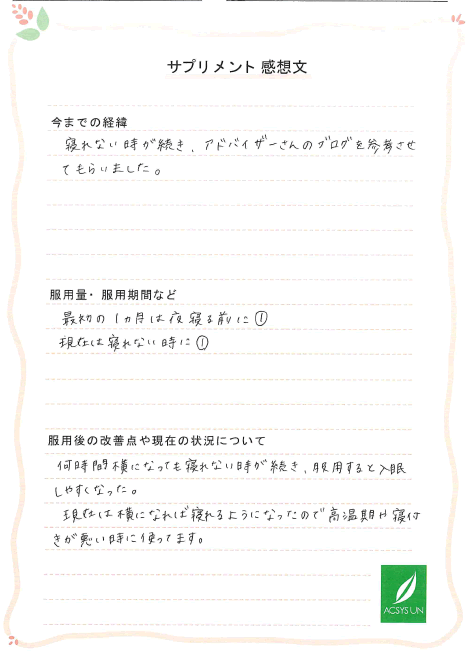 サプリメント 感想文
今までの経緯
寝れない時が続き、アドバイザーさんのブログを参考させ
てもらいました。
服用量・服用期間など
最初の1ヵ月は夜寝る前に①
現在は寝れない時に①
服用後の改善点や現在の状況について
何時間横になっても寝れない時が続き、服用すると入眠
しやすくなった。
現在は横になれば寝れるようになったので高温期や寝付
きが悪い時に使ってます。
ACSYSUN